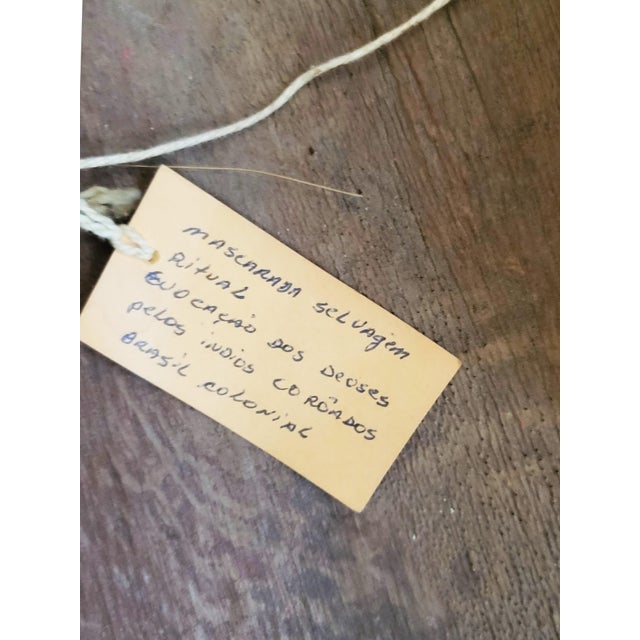 MASCARADA SELVAGEM
RITUAL
EVOCAÇÃO DOS DEUSES
PELOS ÍNDIOS CORÔADOS
BRASIL COLONIAL